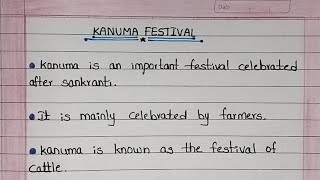 Date
KANUMA FESTIVAL
• Kanuma is an important festival celebrated
after sankranti.
• It is mainly celebrated by farmers.
• Kanuma is known as the festival of
cattle.